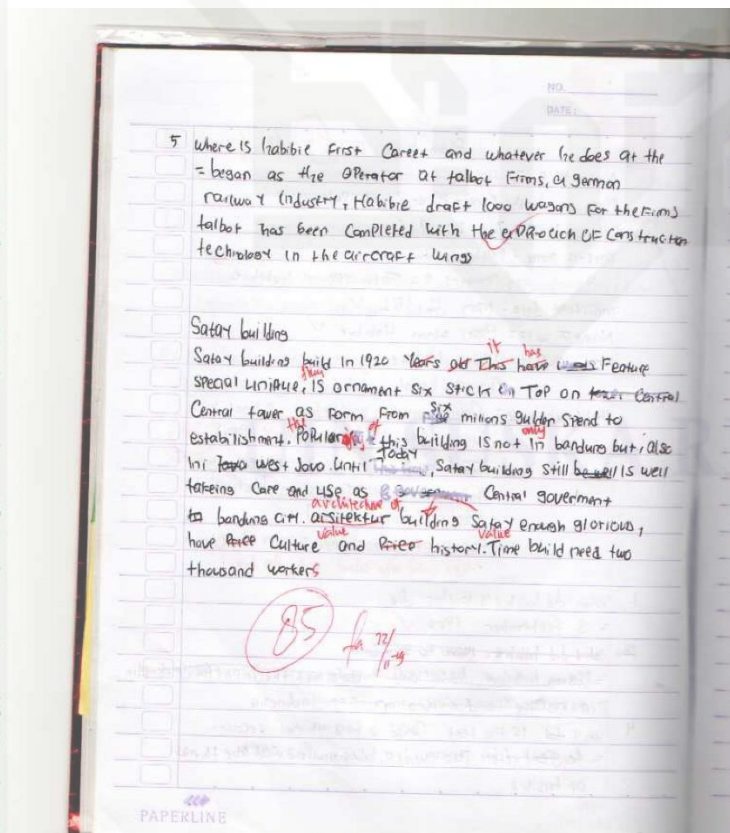 NO.
DATE:
5 Where is habibie First Career and whatever he does at the
= began as the operator at talbot Firms, a german
railway industry, Habibie draft 1000 wagons For the Firms
talbot has been completed with the of construction
technology in the aircraft wings
Satay building
It has
Satay building build in 1920 Years old This have Feature
special unique, is ornament six stick on Top on Central
Six
Central tower as Form From milions gulden spend to
the of only
estabilishment. Popular this building is not in bandung but, also
Today
ini Java west Java. Until , Satay building still be well is well
takeing Care and use as Central goverment
architecture of
to bandung city. arsitektur building Satay enough glorious,
value value
have Price Culture and Price history. Time build need two
thousand workers
85
PAPERLINE